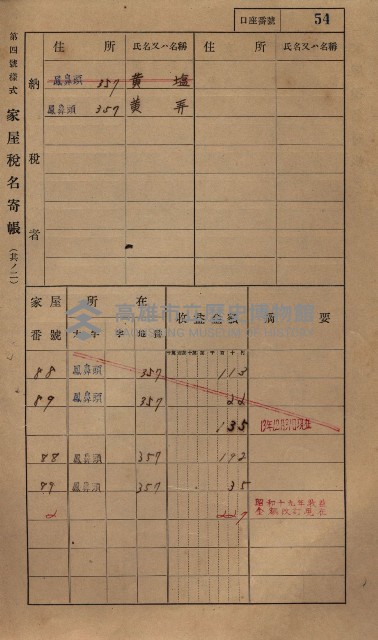 口座番號 54
第四號樣式 家屋稅名寄帳 (其ノ二)
納稅者
住所 氏名又ハ名稱 住所 氏名又ハ名稱
鳳鼻頭 357 黄塩
鳳鼻頭 357 黄弄
家屋番號 所在 收益金額 摘要
大字 字 地番
高雄市立歷史博物館
KAOHSIUNG MUSEUM OF HISTORY
88 鳳鼻頭 357 113
89 鳳鼻頭 357 22
135
88 鳳鼻頭 357 192
89 鳳鼻頭 357 35
2 227
昭和十九年收益
金額改訂現在